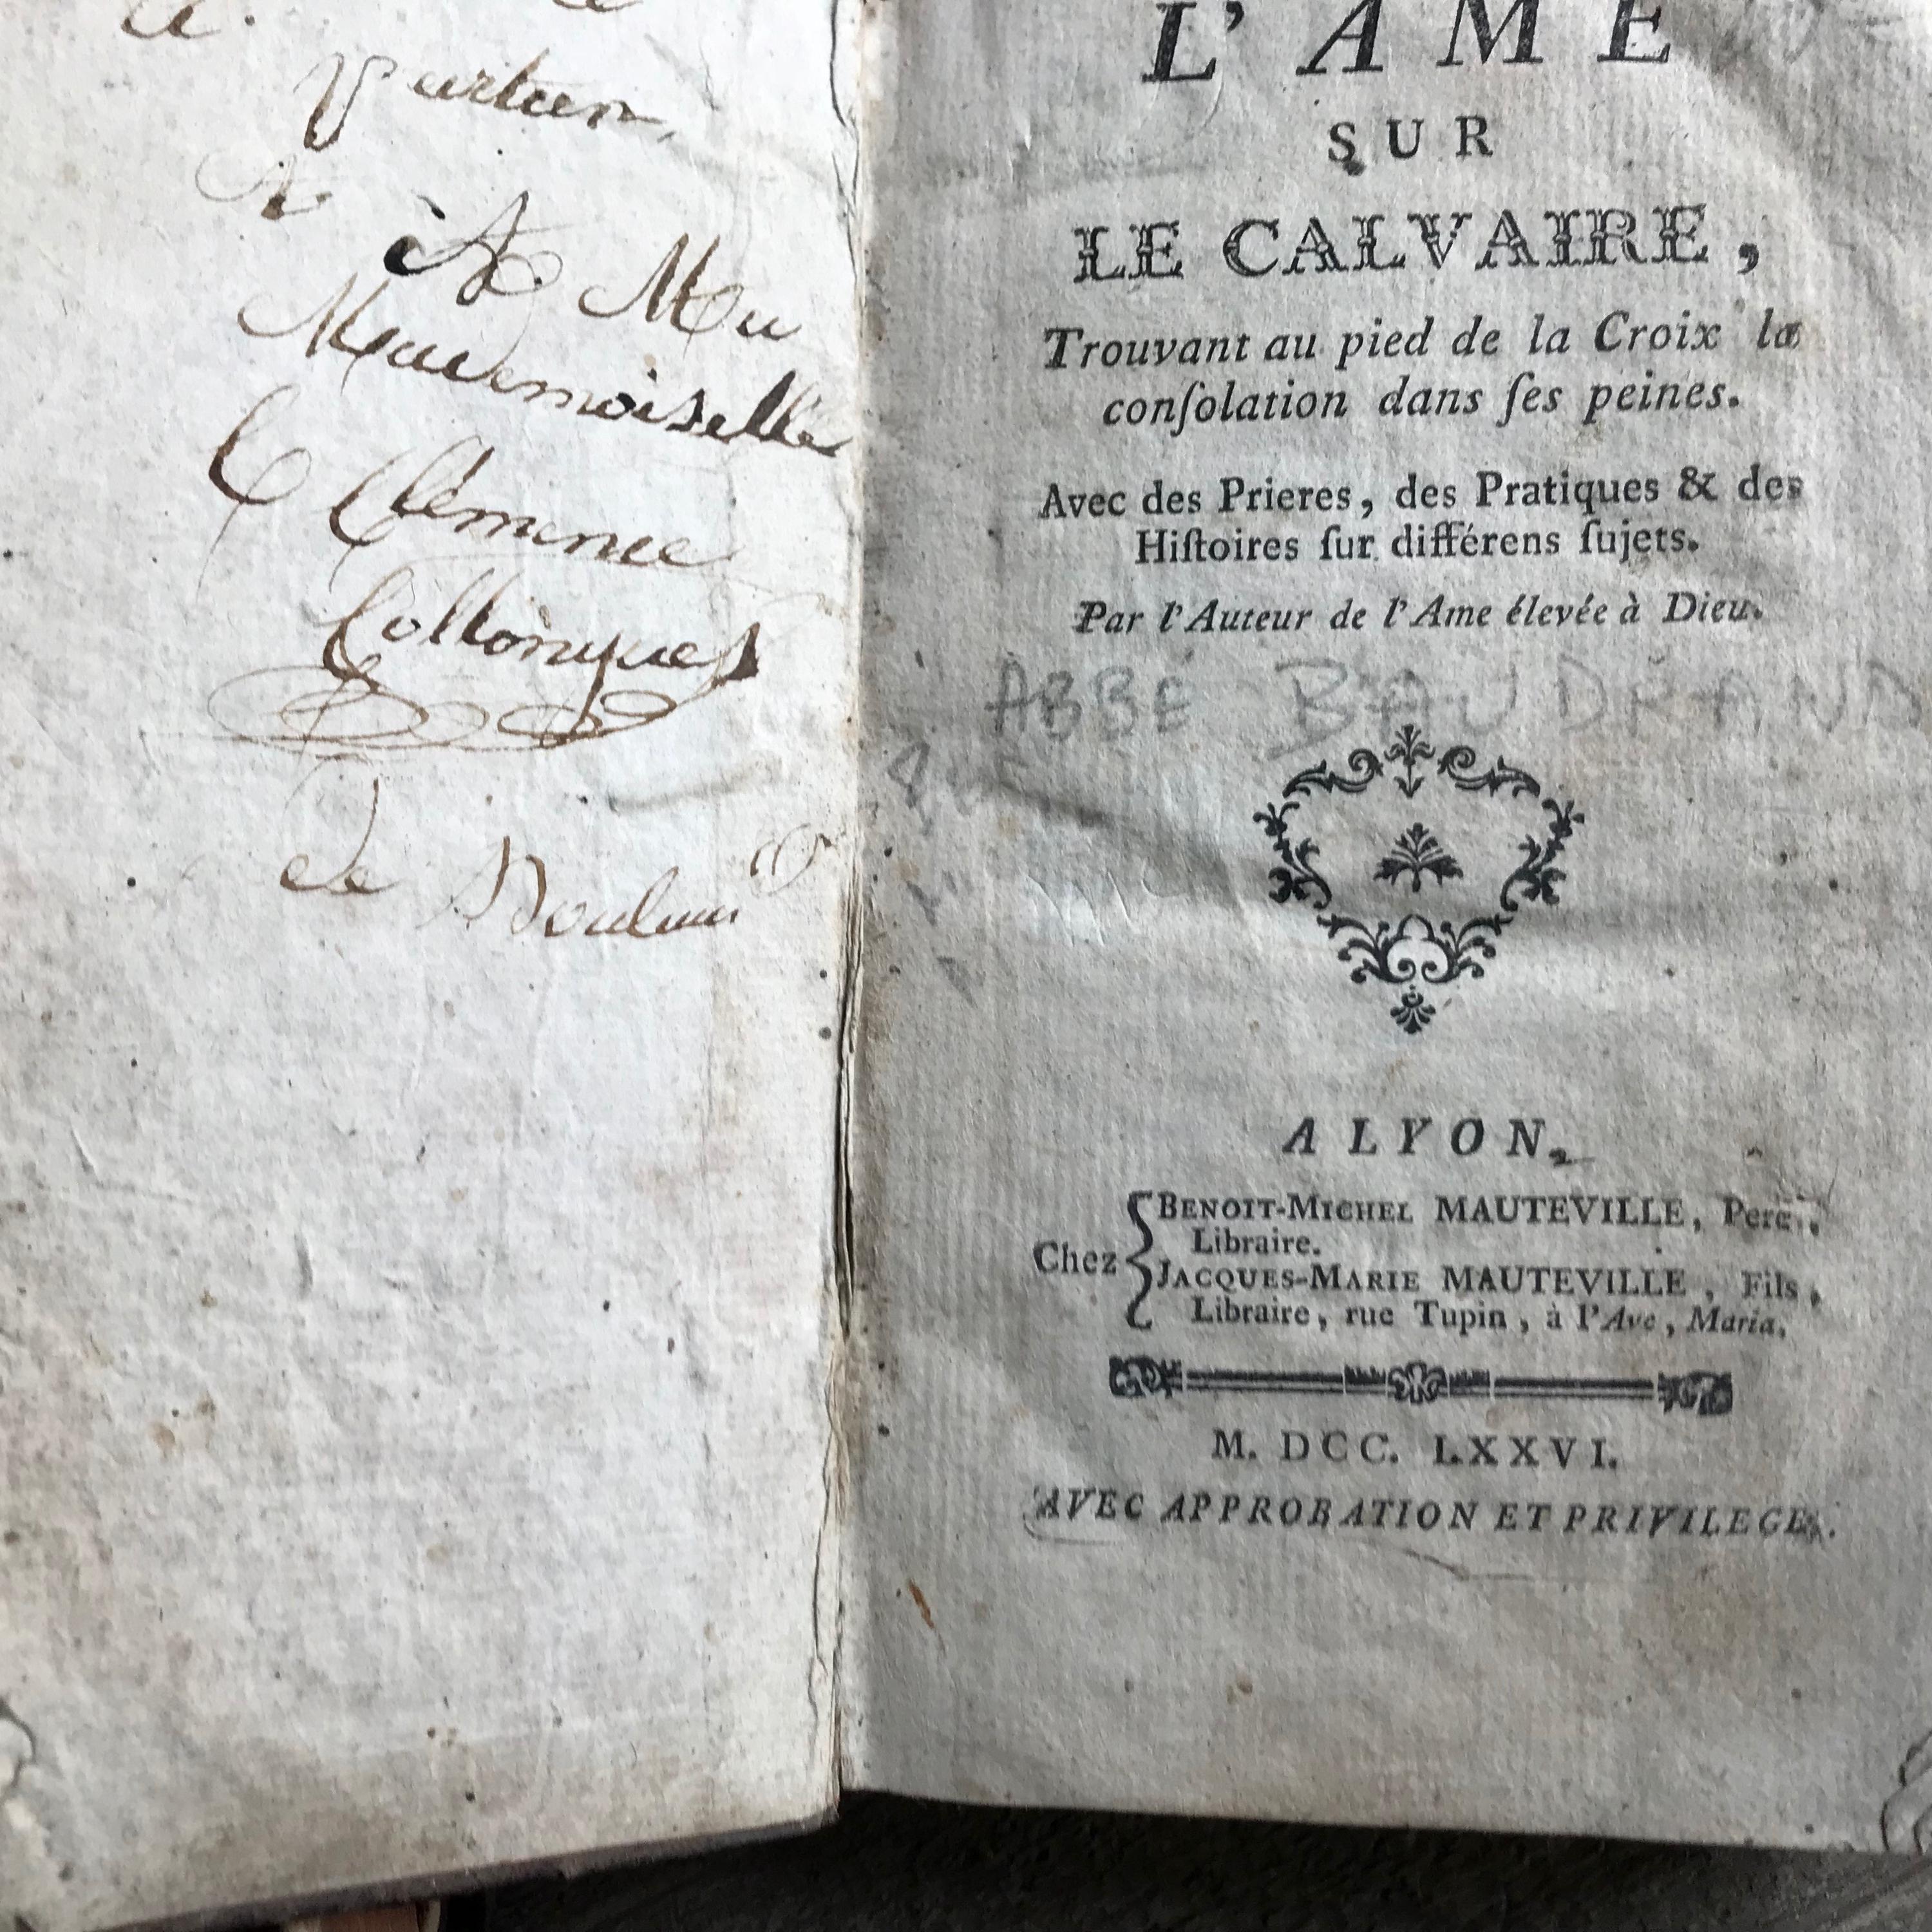 A Mu
Mademoiselle
C Clémence
Collonques
de
L'AME
SUR
LE CALVAIRE,
Trouvant au pied de la Croix la
conſolation dans ſes peines.
Avec des Prieres, des Pratiques & des
Hiſtoires ſur différens ſujets.
Par l'Auteur de l'Ame élevée à Dieu.
ABBÉ BAUDRAND
A LYON,
Chez
BENOIT-MICHEL MAUTEVILLE, Pere,
Libraire.
JACQUES-MARIE MAUTEVILLE, Fils,
Libraire, rue Tupin, à l'Ave, Maria.
M. DCC. LXXVI.
AVEC APPROBATION ET PRIVILEGE.